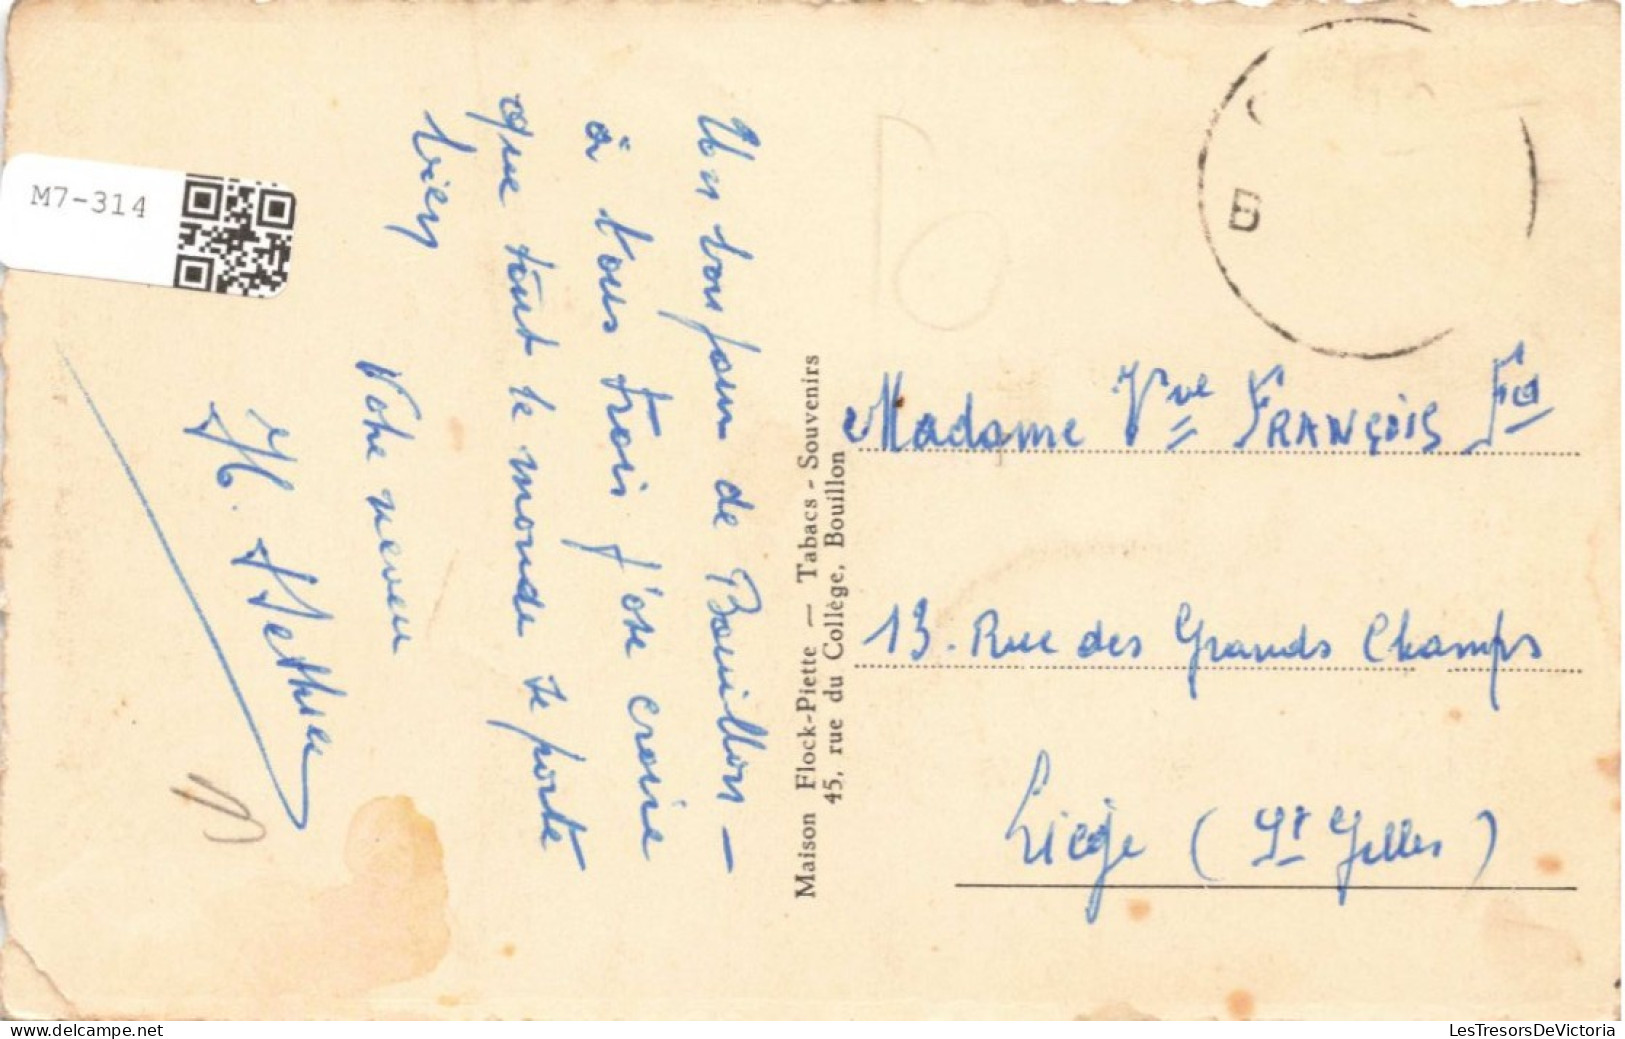 M7-314
Un bonjour de Bouillon –
à tous trois j'ose croire
que tout le monde se porte
bien
Votre neveu
H.
Maison Flock-Piette — Tabacs - Souvenirs
45, rue du Collège, Bouillon
B
Madame Vve FRANÇOIS
13. Rue des Grands Champs
Liège (St Gilles)
delcampe.net
LesTresorsDeVictoria